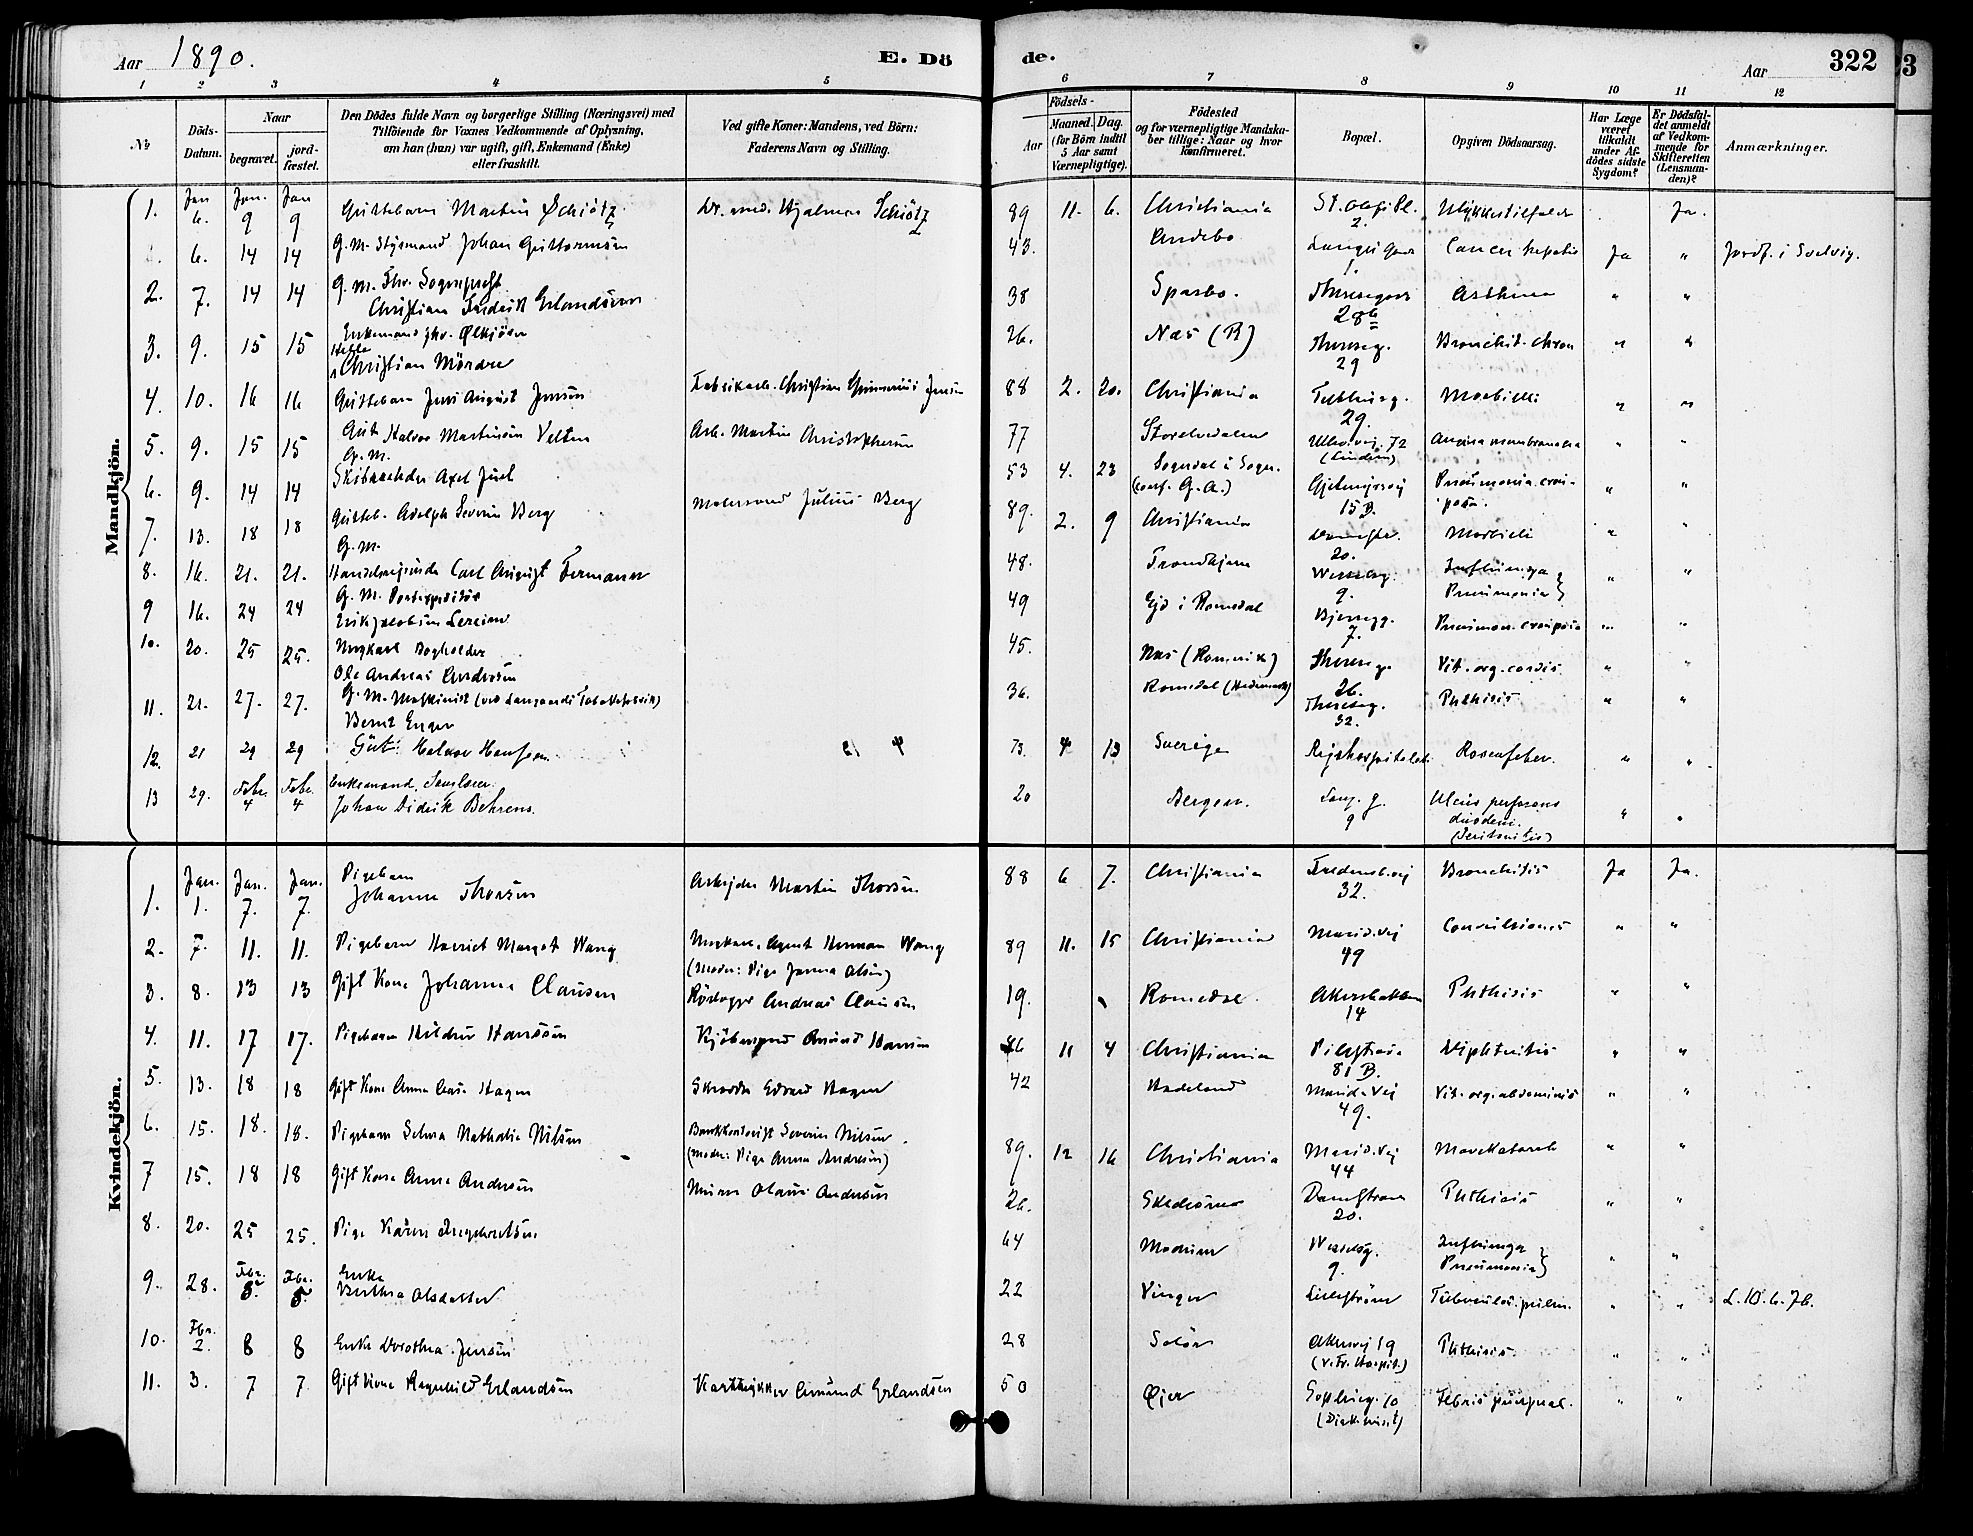 Aar 1890. E. Dö
de. Aar 322
3
1 2 3 4 5 6 7 8 9 10 11 12
No
Döds-Datum.
Naar
begravet.
jord-fæstet.
Den Dödes fulde Navn og borgerlige Stilling (Næringsvei) med
Tilföiende for Voxnes Vedkommende af Oplysning,
om han (hun) var ugift, gift, Enkemand (Enke)
eller fraskilt.
Ved gifte Koner: Mandens, ved Börn:
Faderens Navn og Stilling.
Födsels-
Aar
Maaned. Dag
(for Börn indtil
5 Aar samt
Værnepligtige).
Födested
og for værnepligtige Mandska-
ber tillige: Naar og hvor
konfirmeret.
Bopæl.
Opgiven Dödsaarsag.
Har Læge
været
tilkaldt
under Af-
dödes sidste
Sygdom?
Er Dödsfal-
det anmeldt
af Vedkom-
mende for
Skifteretten
(Lensman-
den)?
Anmærkninger.
Mandkjön.
1. Jan 6. Jan. 9 Jan 9 Guttebarn Martin Schiötz Dr. med. Hjalmar Schiötz 89 11. 6. Christiania St. Olafs Pl. 2. Ulykkestilfælde Ja.
6. 14 14 G. M. Styrmand Johan Guttormsen 43. Andebo Langes Gade 1. Cancer hepatis Ja " Jordf. i Svelvig.
2. 7. 14 14 G. M. fhv. Sogneprest
Christian Fredrik Erlandsen 38 Sparbo. Theresegade 28b Asthma " "
3. 9. 15 15 Enkemand fhv. Ølkjører
Helle Christian Mördre 26. Næs (R) Thereseg. 29 Bronchit. chron " "
4. 10. 16 16 Guttebarn Jens August Jensen Fabrikarb. Christian Jensen 88 2. 20. Christiania 29. Morbilli " "
5. 9. 15 15 Gut Halvor Martinsen Velten Arb. Martin Christophersen 77 Storelvedalen Ullev. vej. 72 Angina membranacea " "
6. 9. 14 14 G. M.
Skibsreder Axel Juel 53 4. 23 Sogndal i Sogn. (conf. G. A.) Gjetemyrsvej 15 B. Pneumonia crouposa. " "
7. 13. 18 18 Gutteb. Adolph Severin Berg Matersvend Julius Berg 89. 2. 9 Christiania 20. Morbilli " "
8. 16. 21. 21. G. M.
Handelsreisende Carl August Fermann 48. Trondhjem Wesselsg. 9. Influenza
Pneumonia " "
9 16. 24 24 G. M. Postexpeditör
Erik Jacobsen Lereim 49 Ejd i Romsdal Bjerregg. 7. Pneumon. crouposa " "
10. 20. 25 25. Ungkarl Bogholder
Ole Andreas Andersen 45. Næs (Romerik) Thereseg. 26. Vit. org. cordis " "
11. 21. 27. 27. G. M. Maskinist (ved Langaards Tobaksfabrik)
Bernt Enger 36. Romedal (Hedemark) Thereseg. 32. Phthisis " "
12. 21 29 29 Gut: Halvor Hansen 73. 4 13 Sverige Rigshospitalet Rosenfeber. " "
13 29. Febr. 4 Febr. 4 Enkemand,
Johan Didrik Behrens. 20 Bergen. Lang. g. 9 Ulcus perforans
duodeni.
(Peritonitis) " "
Kvindekjön.
1. Jan. 1. Jan. 7. Jan. 7. Pigebarn
Johanne Thorsen Arbejder Martin Thorsen 88 6 7. Christiania Fredensb.vej 32. Bronchitis Ja Ja.
2. 7. 11. 11. Pigebarn Harriet Margot Wang Ungkarl, Agent Herman Wang
(Moder: Pige Janna Olsen) 89 11. 15 Christiania Marid. Vej 49 Convulsiones " "
3. 8. 13 13 Gift Kone Johanne Clausen Rörlægger Andreas Clausen 19. Romedal Akersbakken 14 Phthisis " "
4. 11. 17 17. Pigebarn Hildur Hanssen Kjöbmand Amund Hansen 86 11 4 Christiania Pilestræde 81 B. Diphteritis " "
5. 13. 18 18 Gift Kone Anna Hagen Skrædder Edvard Hagen 42 Hadeland Marid. Vej 49. Vit. org. abdominis " "
6. 15. 18. 18. Pigebarn Selma Nathalie Nilsen Bankkontorist Severin Nilsen
(Moder: Pige Anna Andresen) 89. 12 16 Christiania Marid. Vej 44 Mavekatarrh " "
7 15. 18 18 Gift Kone Anne Andersen Murer Olaus Andersen 26. Skedsmo Damstræde 20. Phthisis " "
8. 20. 25 25. Pige Karen Ingebretsen 64 Modum Wesselsg. 9. Influenza
Pneumonia " "
9. 28. Fbr. 5. Fbr. 5. Enke
Berthea Olsdatter 22 Vinger Lillestrøm Tuberculos. pulm. " " L. 10. 6. 76.
10. Fbr. 2. 8 8 Enke Dorothea Jensen 28 Solör Akersvej 19
(V. Fr. Hospit.) Phthisis. " "
11. 3. 7 7 Gift Kone Ragnhild Erlandsen Amund Erlandsen 50 Øjer 10
Febris puerperal. " "